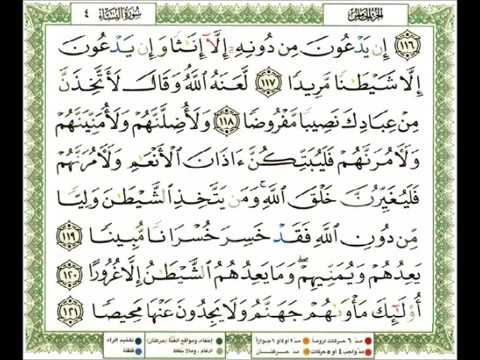 الجزء الخامس
سورة النساء ٤
١١٦ إِن يَدْعُونَ مِن دُونِهِۦٓ إِلَّآ إِنَـٰثًا وَإِن يَدْعُونَ
إِلَّا شَيْطَـٰنًا مَّرِيدًا ١١٧ لَّعَنَهُ ٱللَّهُ وَقَالَ لَأَتَّخِذَنَّ
مِنْ عِبَادِكَ نَصِيبًا مَّفْرُوضًا ١١٨ وَلَأُضِلَّنَّهُمْ وَلَأُمَنِّيَنَّهُمْ
وَلَـَٔامُرَنَّهُمْ فَلَيُبَتِّكُنَّ ءَاذَانَ ٱلْأَنْعَـٰمِ وَلَـَٔامُرَنَّهُمْ
فَلَيُغَيِّرُنَّ خَلْقَ ٱللَّهِ ۚ وَمَن يَتَّخِذِ ٱلشَّيْطَـٰنَ وَلِيًّا
مِّن دُونِ ٱللَّهِ فَقَدْ خَسِرَ خُسْرَانًا مُّبِينًا ١١٩
يَعِدُهُمْ وَيُمَنِّيهِمْ ۖ وَمَا يَعِدُهُمُ ٱلشَّيْطَـٰنُ إِلَّا غُرُورًا ١٢٠
أُو۟لَـٰٓئِكَ مَأْوَىٰهُمْ جَهَنَّمُ وَلَا يَجِدُونَ عَنْهَا مَحِيصًا ١٢١